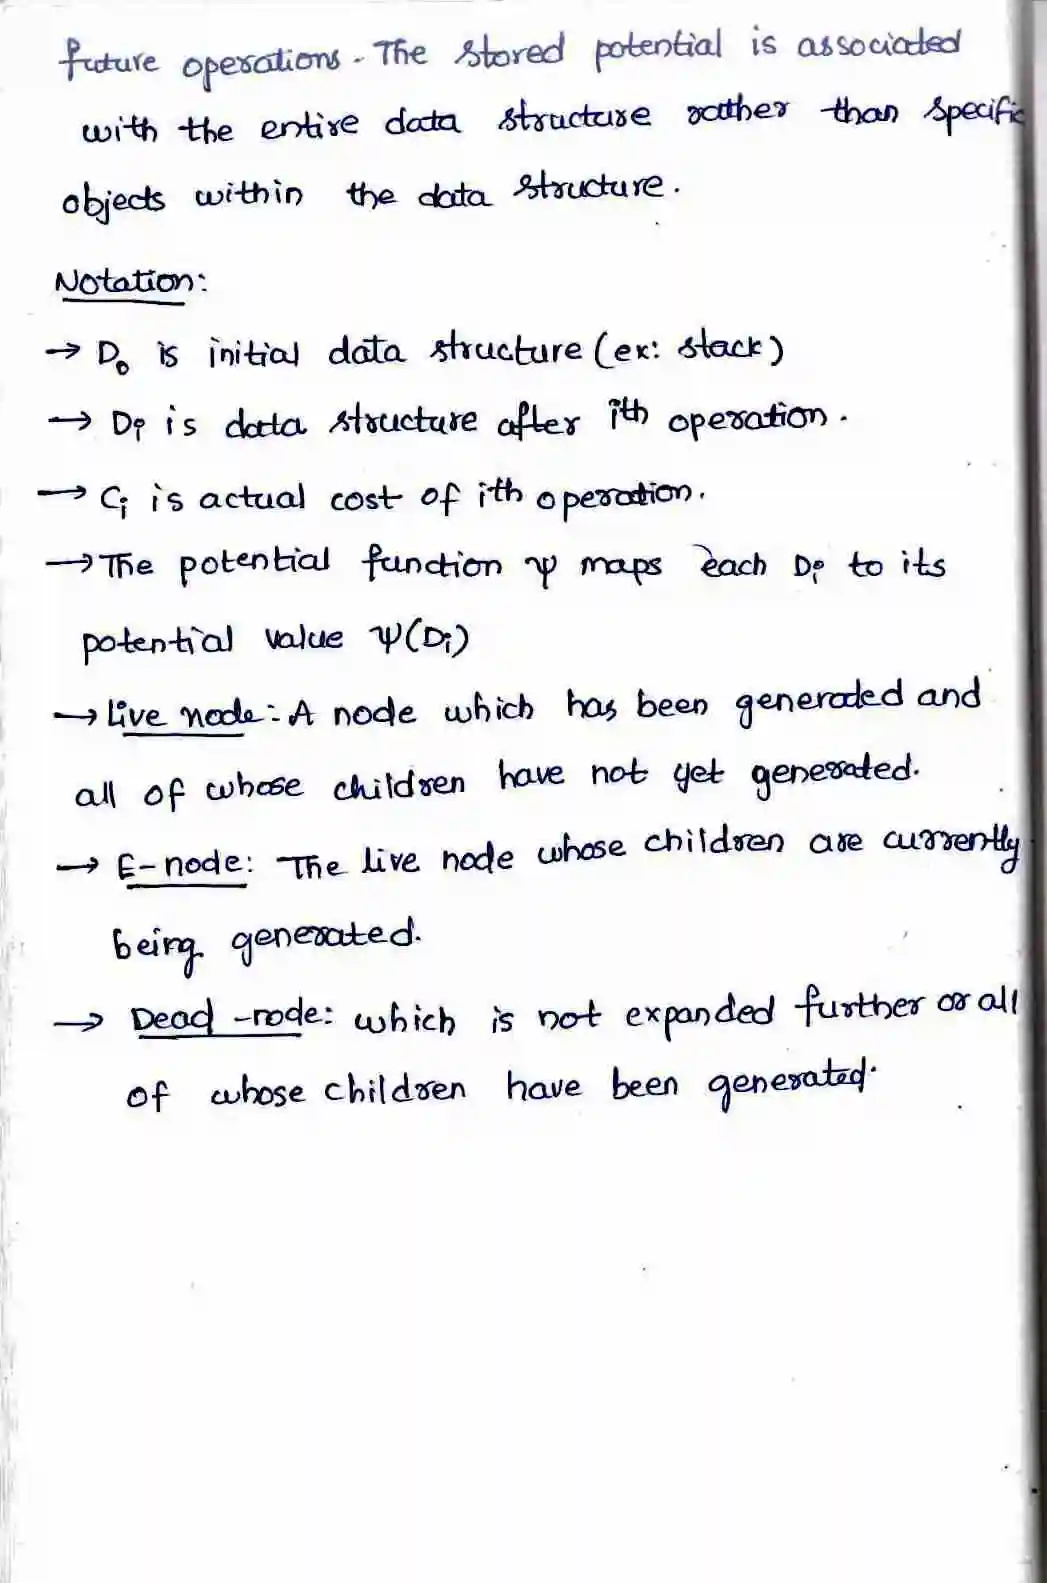 future operations. The stored potential is associated
with the entire data structure rather than specific
objects within the data structure.
Notation:
→ D₀ is initial data structure (ex: stack)
→ Di is data structure after ith operation.
→ Ci is actual cost of ith operation.
→ The potential function ψ maps each Di to its
potential value ψ(Di)
→ Live node: A node which has been generated and
all of whose children have not yet generated.
→ E-node: The live node whose children are currently
being generated.
→ Dead-node: which is not expanded further or all
of whose children have been generated.